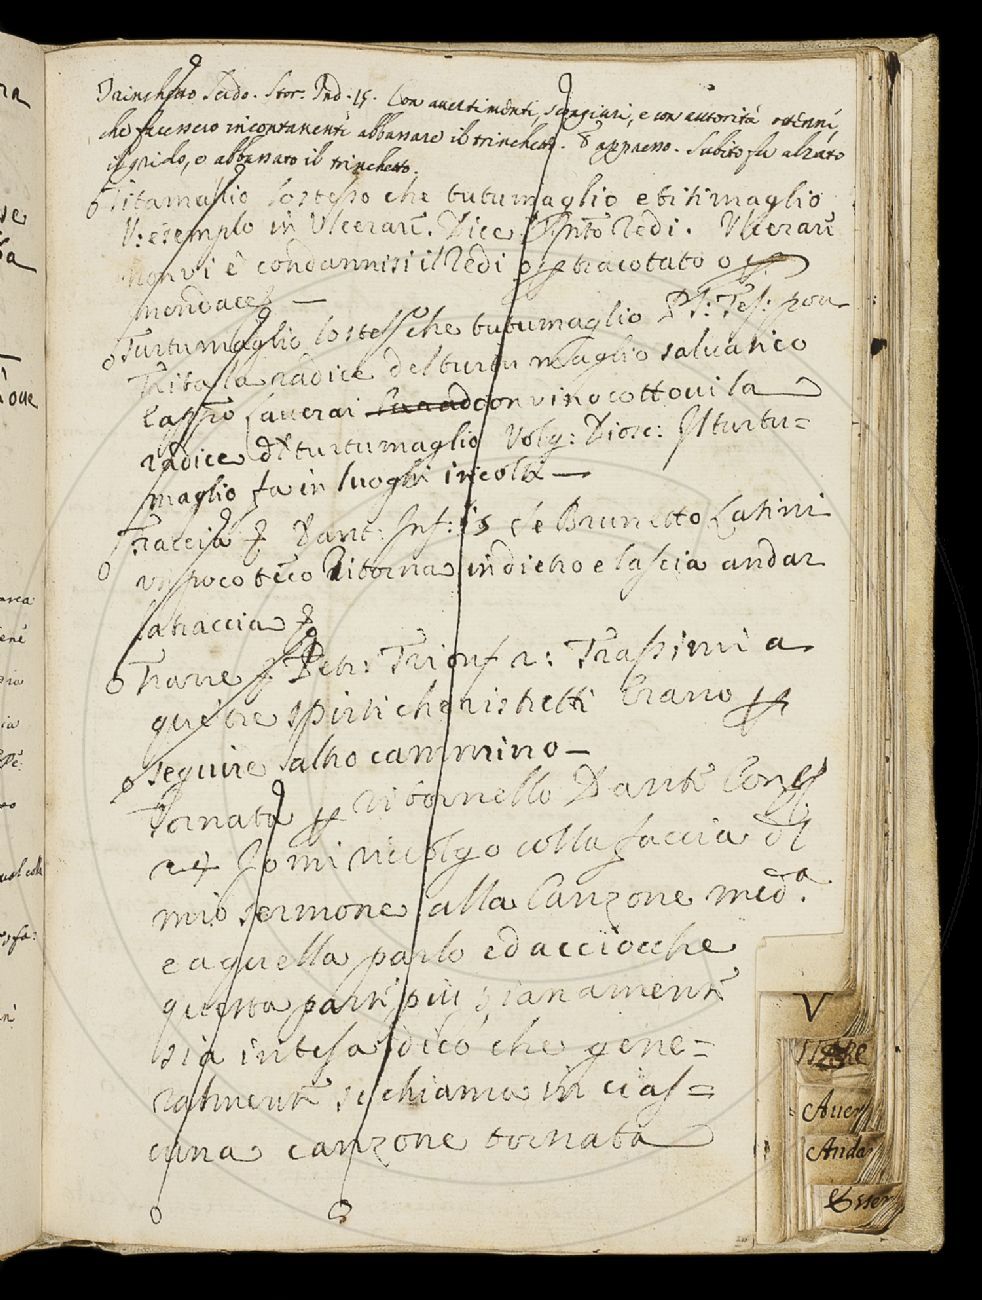 Trinchetto Scdo. Stor. Ind. 15. Con auertimenti, scongiuri, e con autorità ottenni,
che facessero incontanenti abbassare il trinchetto. E appresso. Subito fu alzato
il grido, e abbassato il trinchetto.
Titamalio lo stesso che tutumaglio e titimaglio
V: esempio in Ulcerare. Dice Redi. Ulcerare
non vi è condannisi il Redi o tracotato o
mendace —
Turtumaglio lo stesso che tutumaglio Tes: pou
Trita la radice del turtumaglio saluatico
Lauerai con vino cottoui la
radice del turtumaglio Volg: Diosc: Il turtu=
maglio fa in luoghi incolti —
Traccia Dant: Inf: 15 se Brunetto Latini
un poco teco Ritorna indietro e lascia andar
la traccia
Trarre Petr: Trionf 2: Trassimi a
que tre spirti che ristretti Erano
seguire altro cammino —
Tornata ritornello Dante Conv
24 Io mi riuolgo colla faccia del
mio sermone alla Canzone meda.
e a quella parlo ed acciocche
questa parte più pianamente
sia intesa dico che gene=
ralmente si chiama in cias=
cuna canzone tornata
V
Auer
Andar
Esser